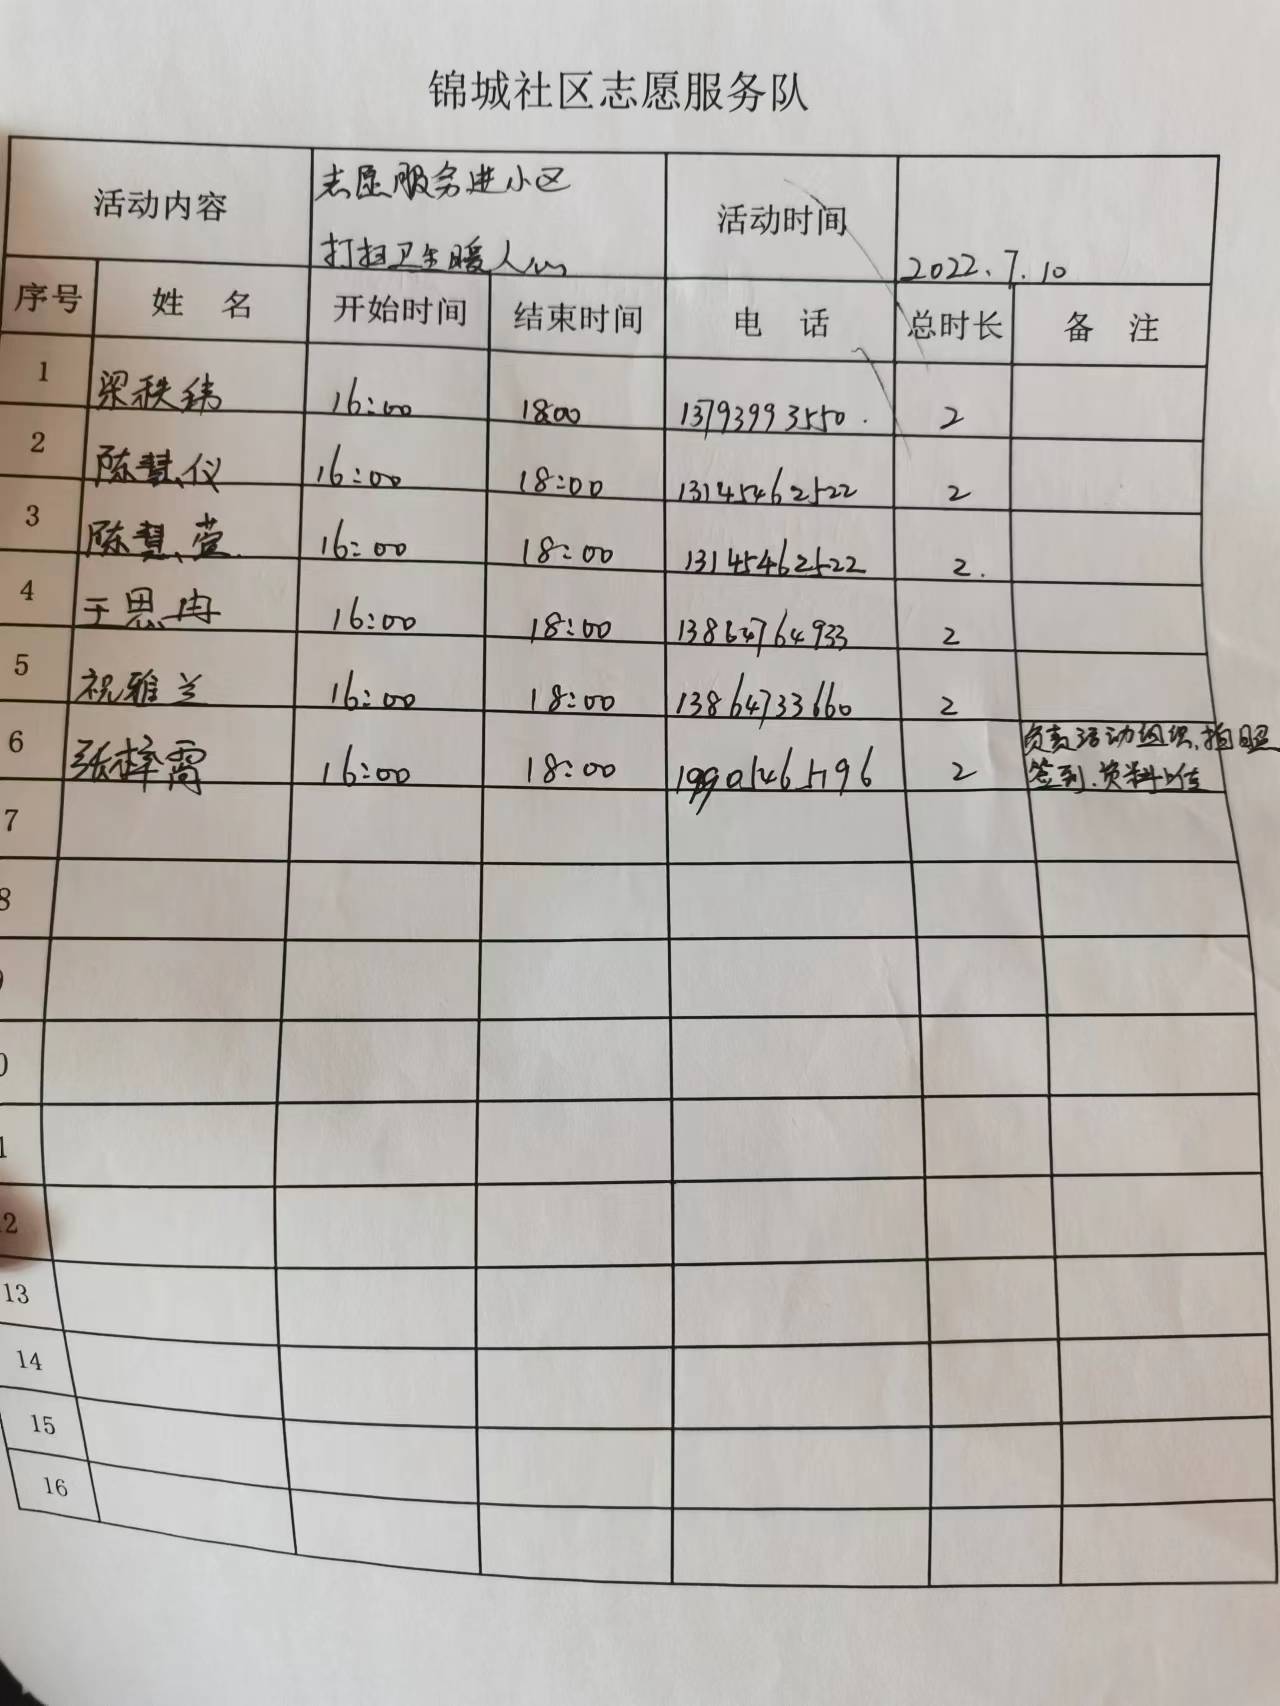 锦城社区志愿服务队
活动内容 志愿服务进小区 打扫卫生暖人心 活动时间 2022.7.10
序号 姓 名 开始时间 结束时间 电 话 总时长 备 注
1 梁秩纬 16:00 18:00 13793993550. 2
2 陈慧仪 16:00 18:00 13145462522 2
3 陈慧萱. 16:00 18:00 13145462522 2.
4 于思冉 16:00 18:00 13864764933 2
5 祝雅兰 16:00 18:00 13864733660 2
6 张梓霄 16:00 18:00 199905465196 2 负责活动组织、拍照 签到、资料上传
7
8
13
14
15
16